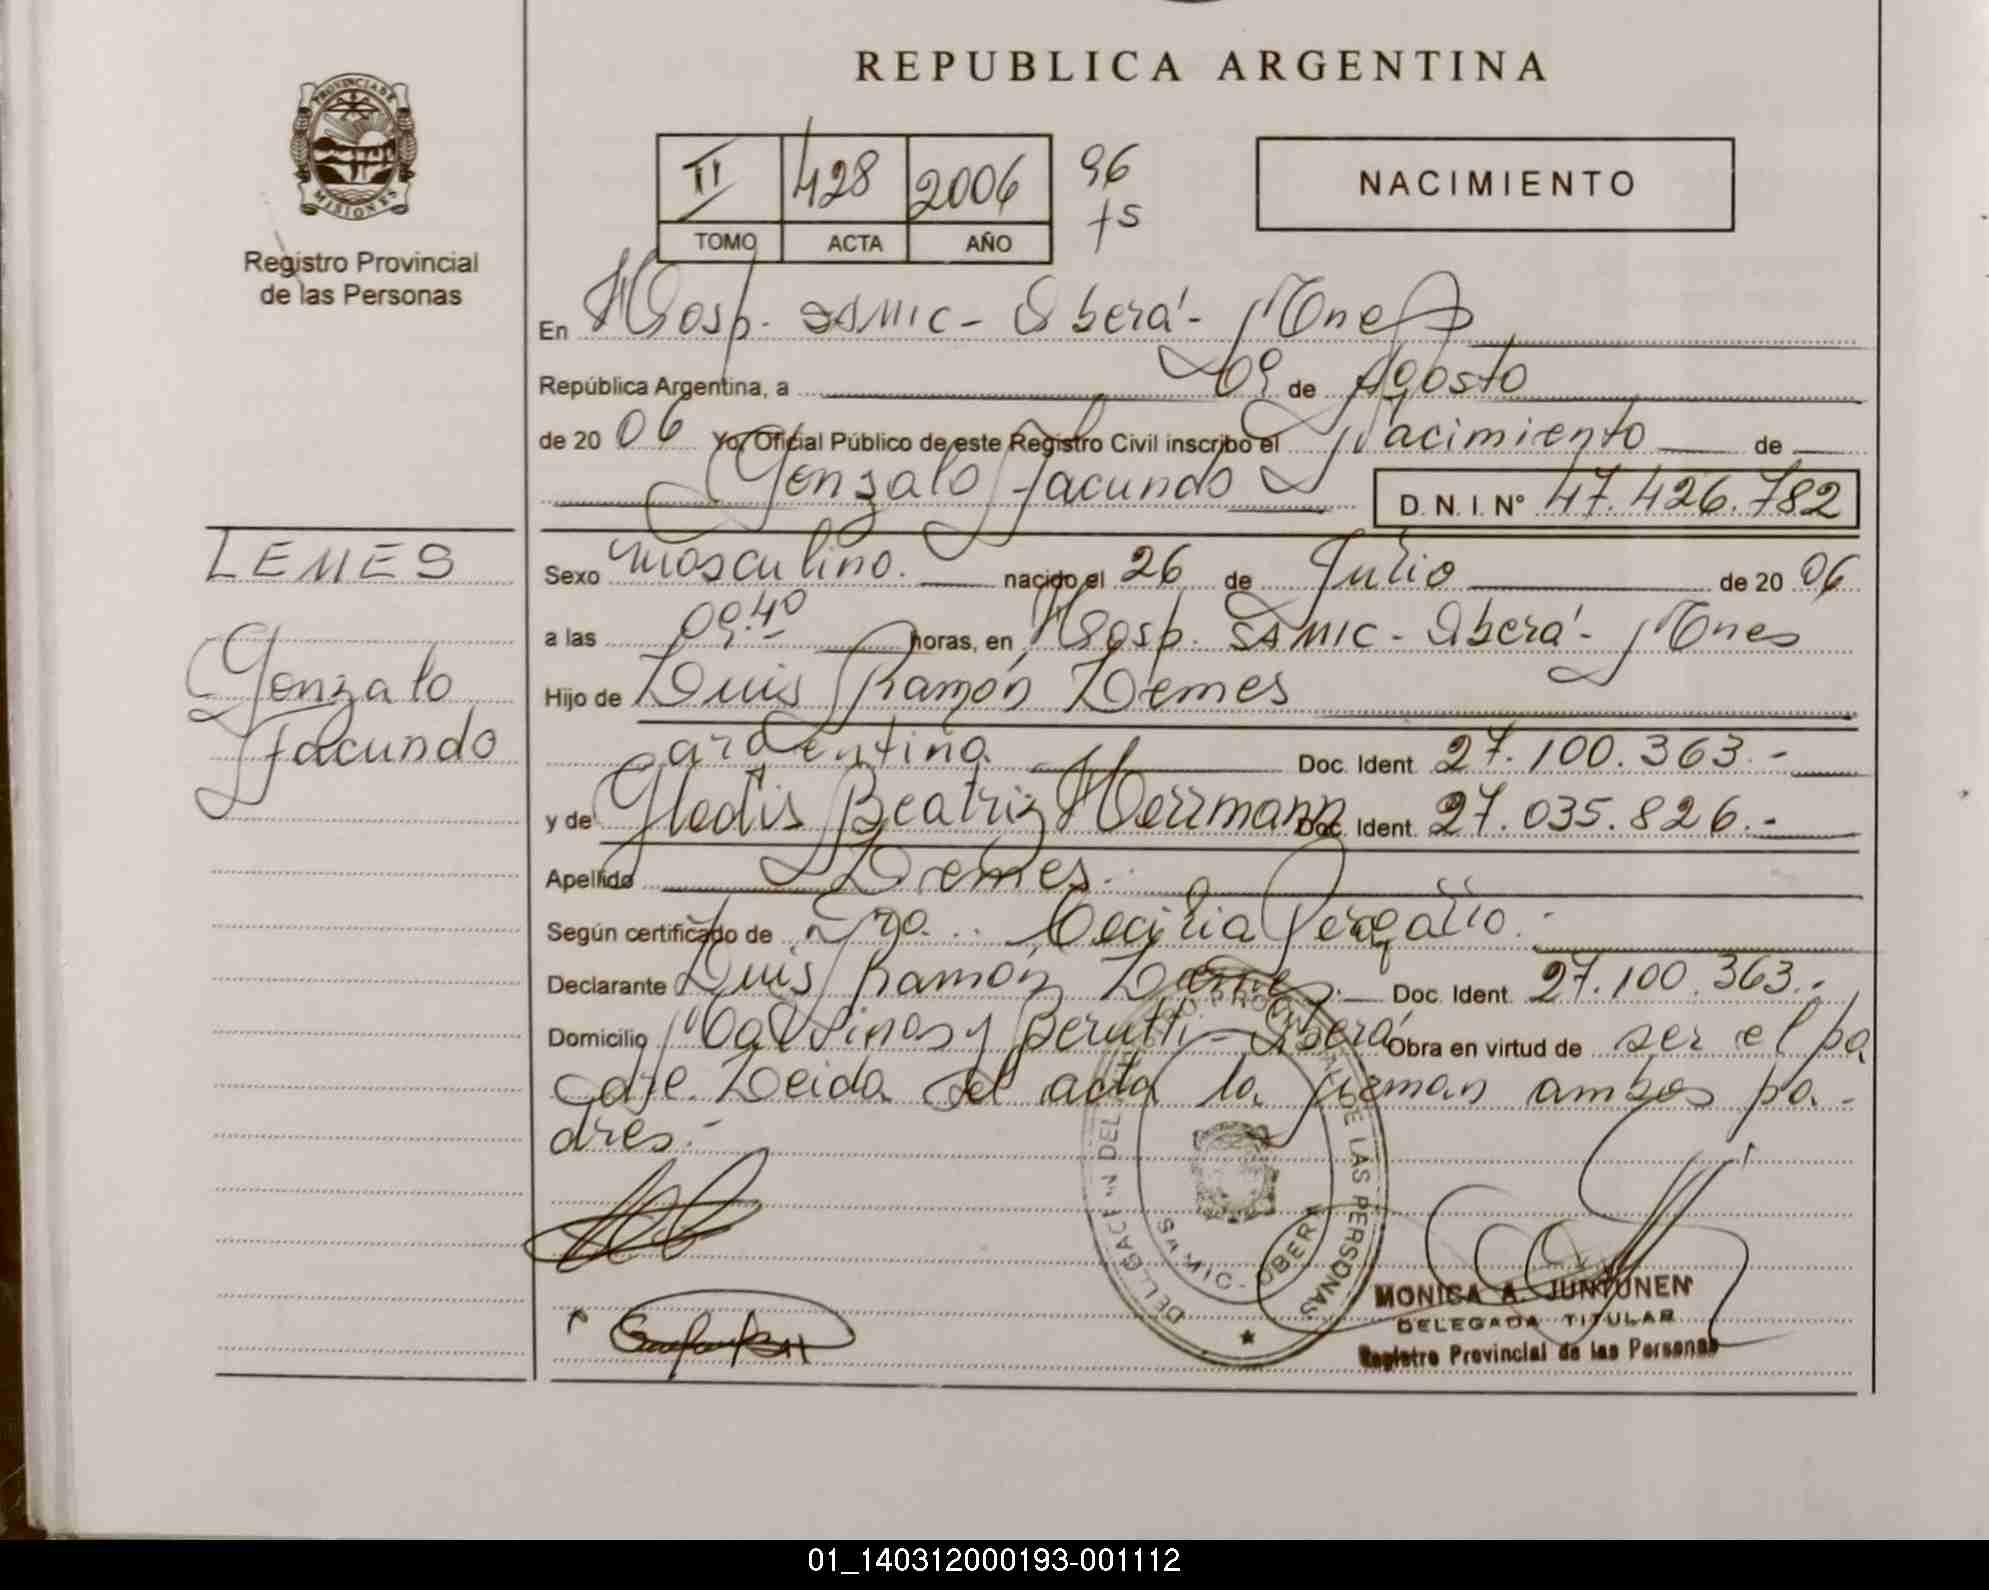 REPUBLICA ARGENTINA
PROVINCIA DE
MISIONES
Registro Provincial
de las Personas
II 428 2006 96
TOMO ACTA AÑO
NACIMIENTO
En Hosp. SAMIC - Oberá - Mnes
República Argentina, a de Agosto
de 20 06 Yo, Oficial Público de este Registro Civil inscribo el Nacimiento de
Gonzalo Facundo D. N. I. N° 47.426.782
LEMES
Gonzalo
Facundo
Sexo masculino. nacido el 26 de Julio de 20 06
a las 09.40 horas, en Hosp. SAMIC - Oberá - Mnes
Hijo de Luis Ramón Lemes
argentina Doc. Ident. 27.100.363.-
y de Gladis Beatriz Herrmann Doc. Ident. 27.035.826.-
Apellido Lemes.
Según certificado de Dra. Cecilia
Declarante Luis Ramón Lemes. Doc. Ident. 27.100.363.-
Domicilio Malvinas y Berutti - Oberá Obra en virtud de ser el pa
dre. Leida el acta la firman ambos pa-
dres.-
DELEGACION DE LAS PERSONAS
SAMIC - OBERA
MONICA A. JUNTUNEN
DELEGADA TITULAR
Registro Provincial de las Personas
01_140312000193-001112